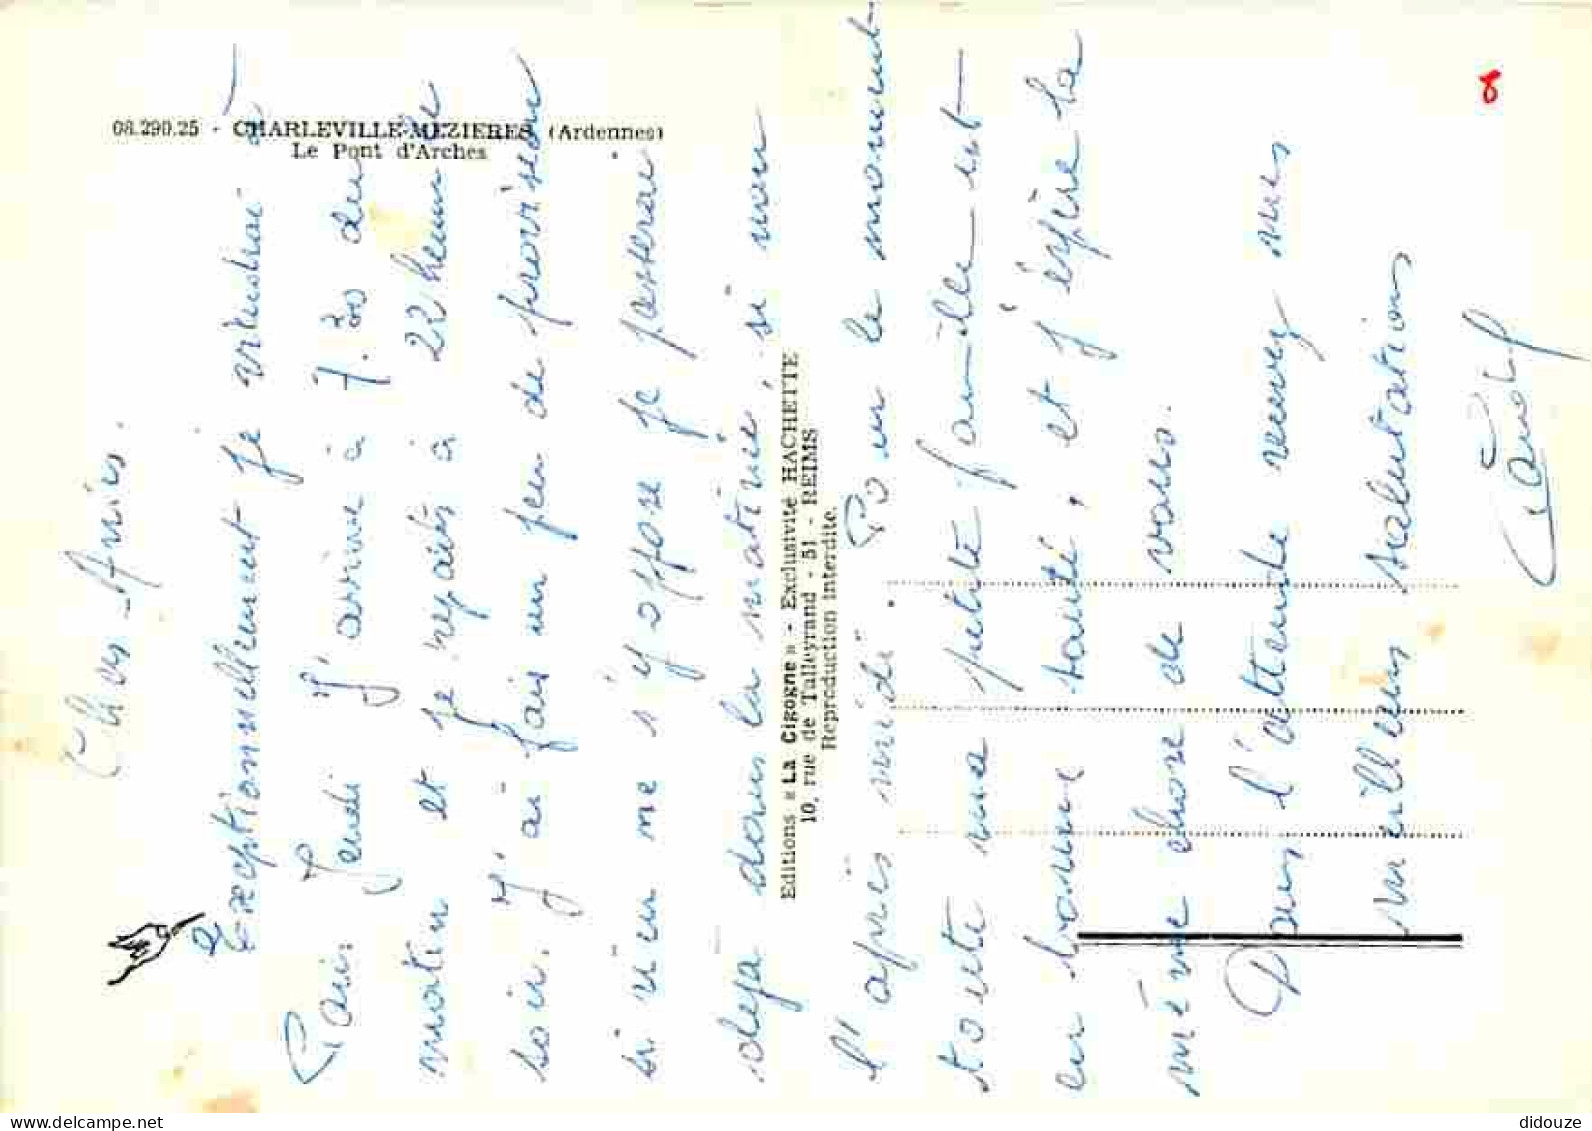 08.290.25 - CHARLEVILLE-MEZIERES (Ardennes)
Le Pont d'Arches
Editions « La Cigogne » - Exclusivité HACHETTE
10, rue de Talleyrand - 51 - REIMS
Reproduction interdite.
Chers Amis.
Exceptionnellement je viendrai à
Paris Jeudi J'arrive à 7.30 du
matin et je repars à 22 heures le
soir. J'ai fais un peu de provision
si rien ne s'y oppose je passerai
deja dans la matinée, si non
l'apres midi. Pour le moment
toute ma petite famille est
en bonne santé, et j'espère la
même chose de vous.
Dans l'attente recevez mes
meilleurs salutations
8
delcampe.net
didouze